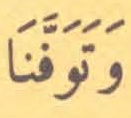 وَتَوَفَّنَا